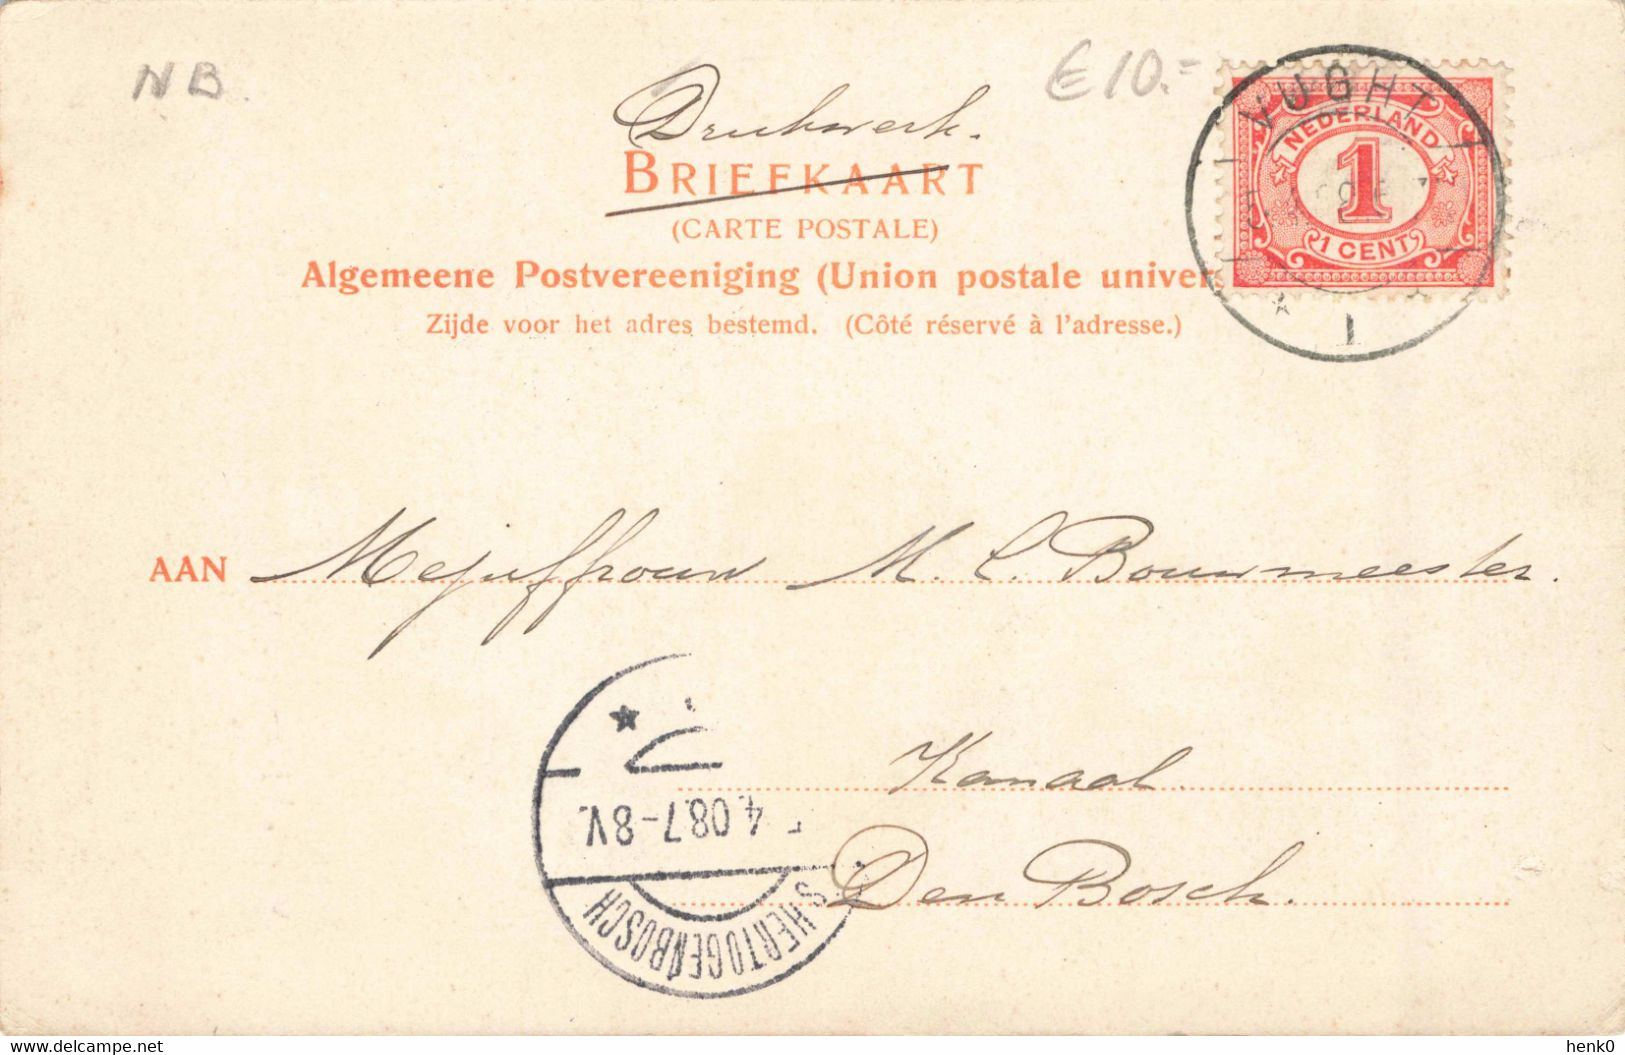 NB
€10.-
Drukwerk.
BRIEFKAART
(CARTE POSTALE)
Algemeene Postvereeniging (Union postale univer
Zijde voor het adres bestemd. (Côté réservé à l'adresse.)
VUGHT
1
NEDERLAND
1
1 CENT
AAN Mejuffrouw M. C. Bouwmeester.
Kanaal.
Den Bosch.
4.08.7-8V.
'SHERTOGENBOSCH
delcampe.net
henk0